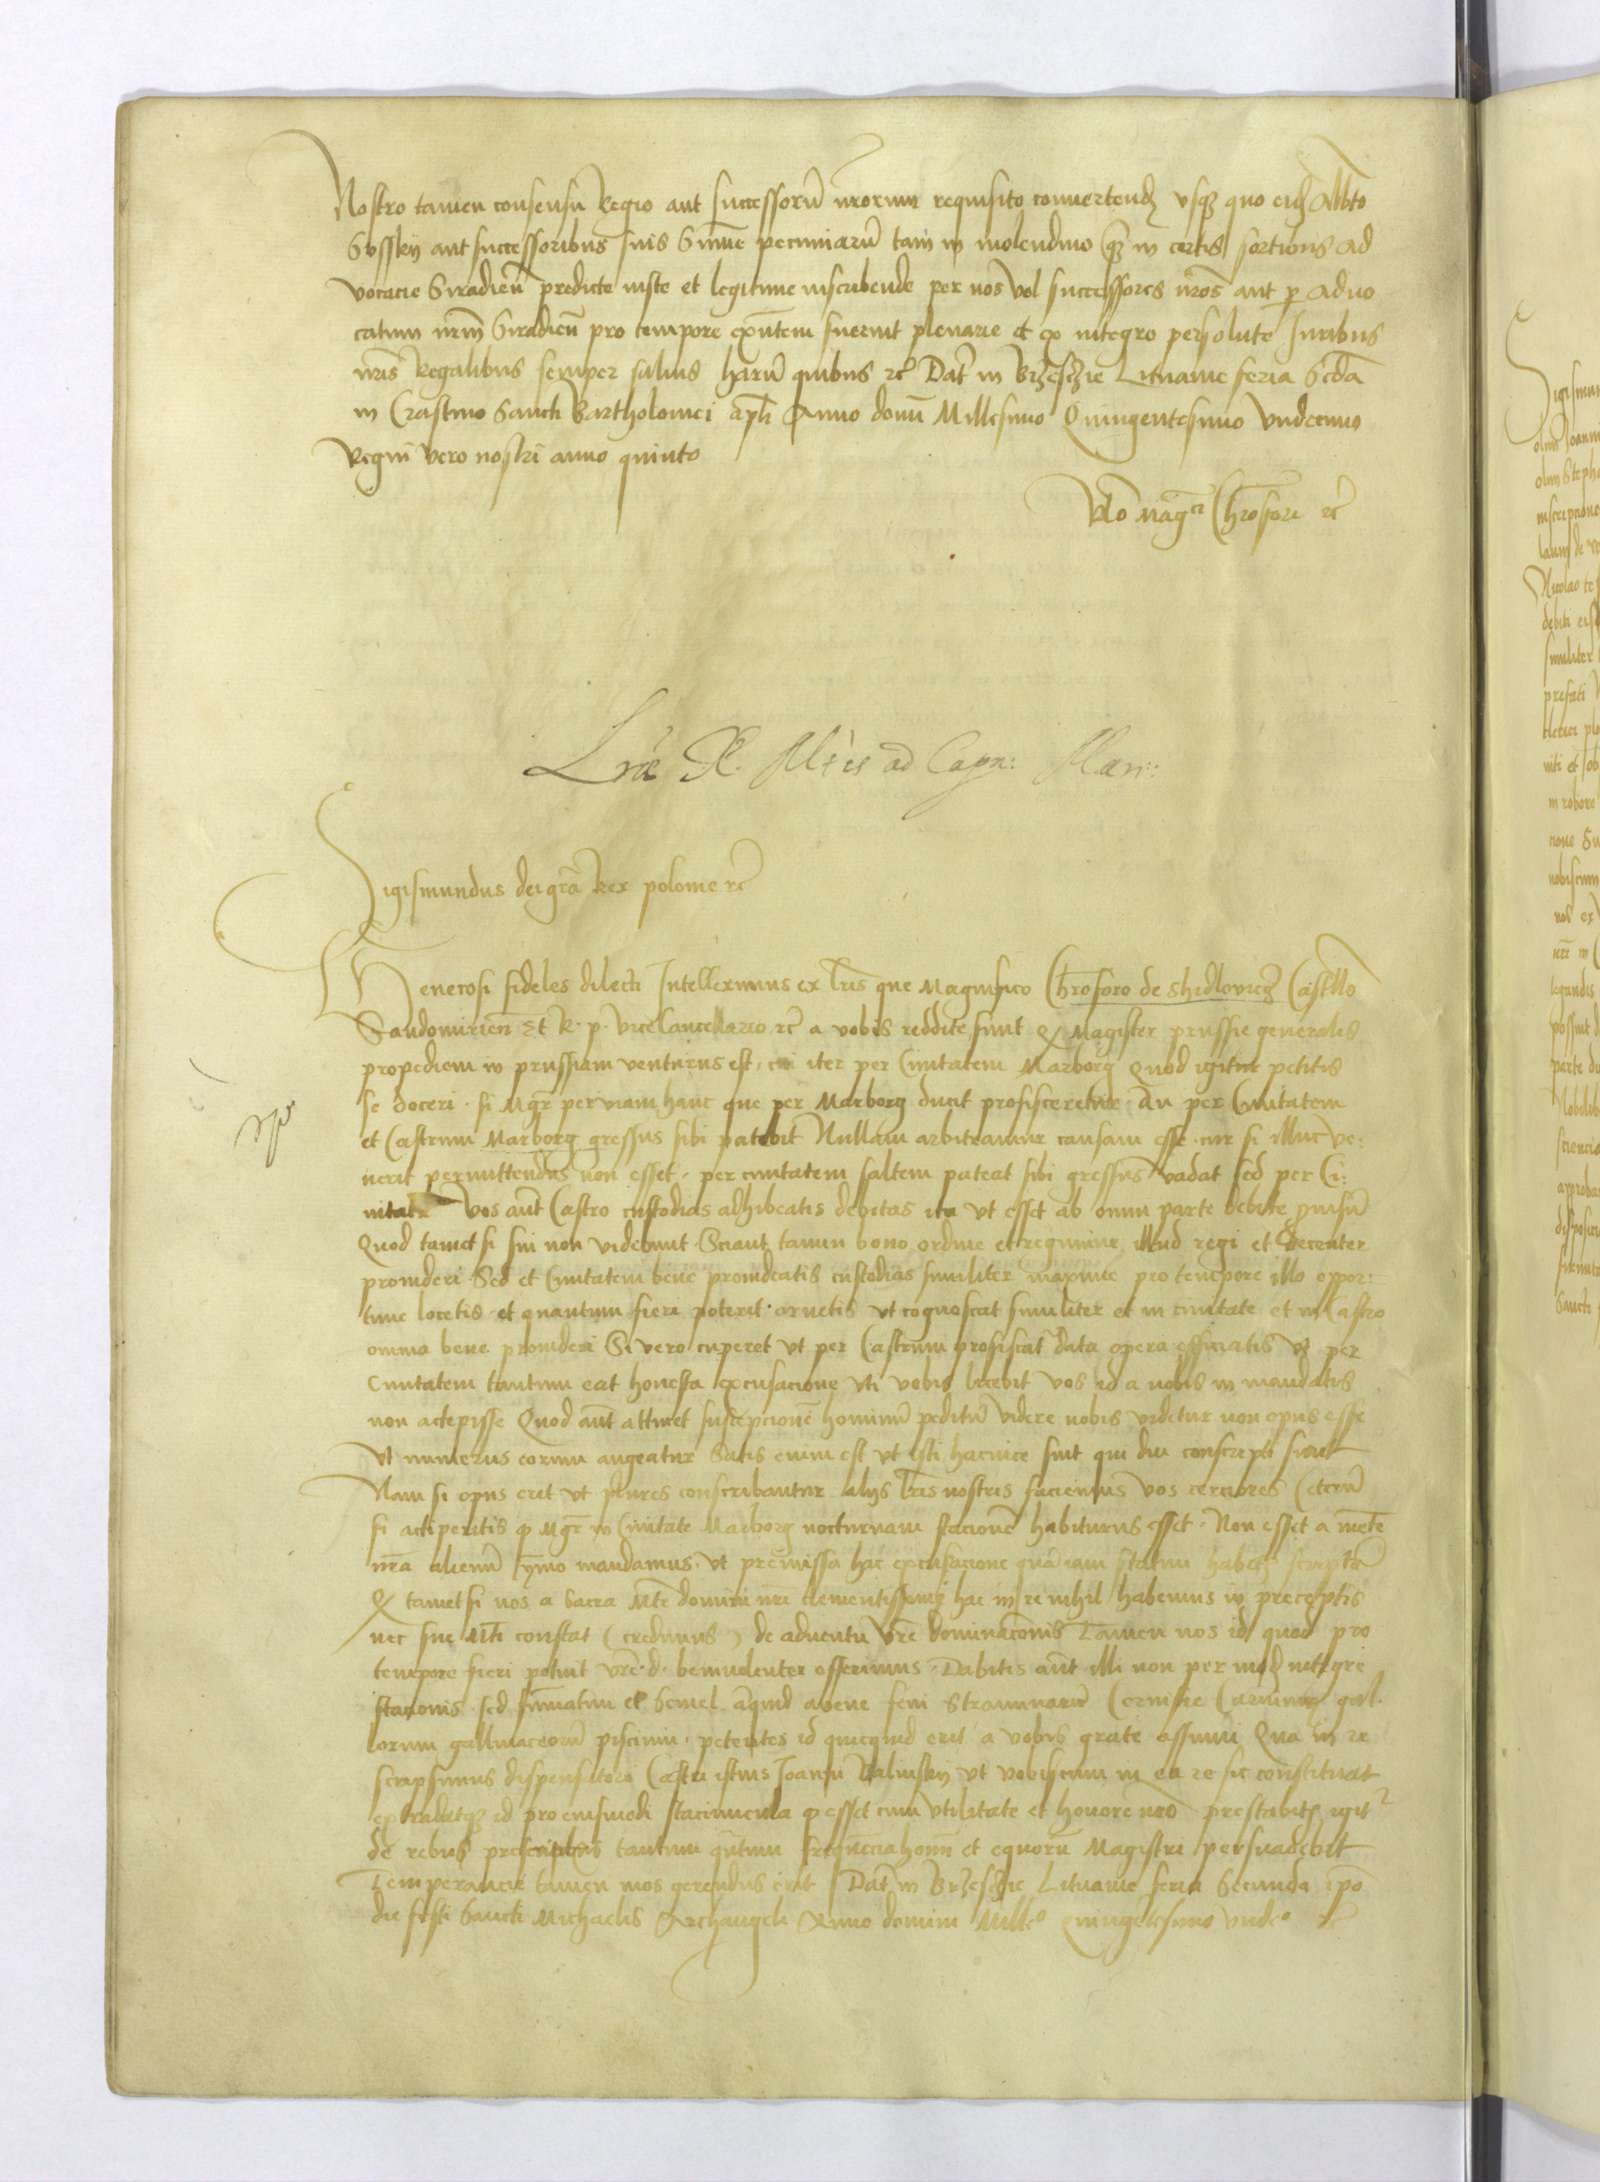 Nostro tamen consensu Regio aut successorū nrorum requisito convertend usq quo eid Albto
aut successoribus suis Summe pecuniarū tam in molendino q in certis sortionis ad
vocacie Siradieñ predicte iuste et legitime inscribende per nos vel successores nros aut p advo
catum nrm Siradieñ pro tempore exñtem fuerint plenarie et ex integro persolute Juribus
nris Regalibus semper salvis harū quibus rc Dat in Brzesczie Lituanie feria Scda
in Crastino Sancti Bartholomei apli Anno domi Millesimo Quingentesimo undecimo
Regni vero nostri anno quinto
Rlo Magci Chrofori rc
Lræ R. Mtis ad Capn: Mari:
Sigismundus dei gra Rex polonie rc
Generosi fideles dilecti Intelleximus ex lris que Magnifico Chroforo de Shidloviecz Castello
Sandomirieñ Et R. p. vicecancellario rc a vobis reddite sunt Q Magister prussie generalis
propediem in prussiam venturus est, cui iter per Civitatem Marborg Quod igitur petitis
se doceri. si Mgr per viam hanc que per Marborg ducit proficisceretur. An per Civitatem
et Castrum Marborg gressus sibi patebit Nullam arbitramur causam esse. cur si illuc ve:
nerit permittendus non esset. per civitatem saltem pateat sibi gressus vadat sed per Ci:
vitatē Vos aūt Castro custodias adhibeatis debitas ita ut esset ab omni parte debite pvisū
Quod tametsi sui non videbunt. Sciant tamen bono ordine et regimine illud regi et decenter
provideri. Sed et Civitatem bene provideatis custodias similiter maxime pro tempore illo oppor:
tune locetis. et quantum fieri poterit. ornetis ut cognoscat similiter et in civitate et in Castro
omnia bene provideri Si vero cuperet ut per Castrum proficiscat data opera efficiatis ut per
Civitatem tantum eat honesta excusacione uti vobis licebit vos id a nobis in mandatis
non accepisse Quod aūt attinet suscepcionē hominū peditū videre nobis videtur non opus esse
ut numerus eorum augeatur Satis enim est ut isti hacvice sint qui diu conscripti sunt
Nam si opus erit ut plures conscribantur alijs lris nostris faciemus vos cerciores Ceterū
si acceperitis q Mgr in Civitate Marborg nocturnam stacionē habiturus esset. Non esset a mēte
nra alienū ymo mandamus. ut premissa hac excusacione quā iam statim habetis scriptā
Q tametsi nos a Sacra Mte domini nri clementissimi hac in re nihil habemus in preceptis
nec sue Mti constat (credimus) de adventu vre dominaconis Tamen nos id quod pro
tempore fieri potuit vre. d. benivolenter offerimus. Dabitis aūt illi non per mod integre
stationis. sed summatim et semel aliquid avene feni Straminarū Cervisie Carnium gal.
lorum gallinaceorū piscium. petentes id quicquid erit a vobis grate assumi Qua in re
scripsimus dispensatori Castri istius Joanni Balinsky ut vobiscum in ea re sic constituat
extradatq id pro eiusmodi staciuncula q esset cum utilitate et honore nro prestabitis igitr
de rebus prescriptis tantum qntum frequencia homi et equorū Magistri persuadebit
Temperancie tamen mos gerendus erit Dat in Brzesczie Lituanie feria Secunda ipo
die festi Sancti Michaelis Archangeli Anno domini Millo Quingētesimo undeo rc